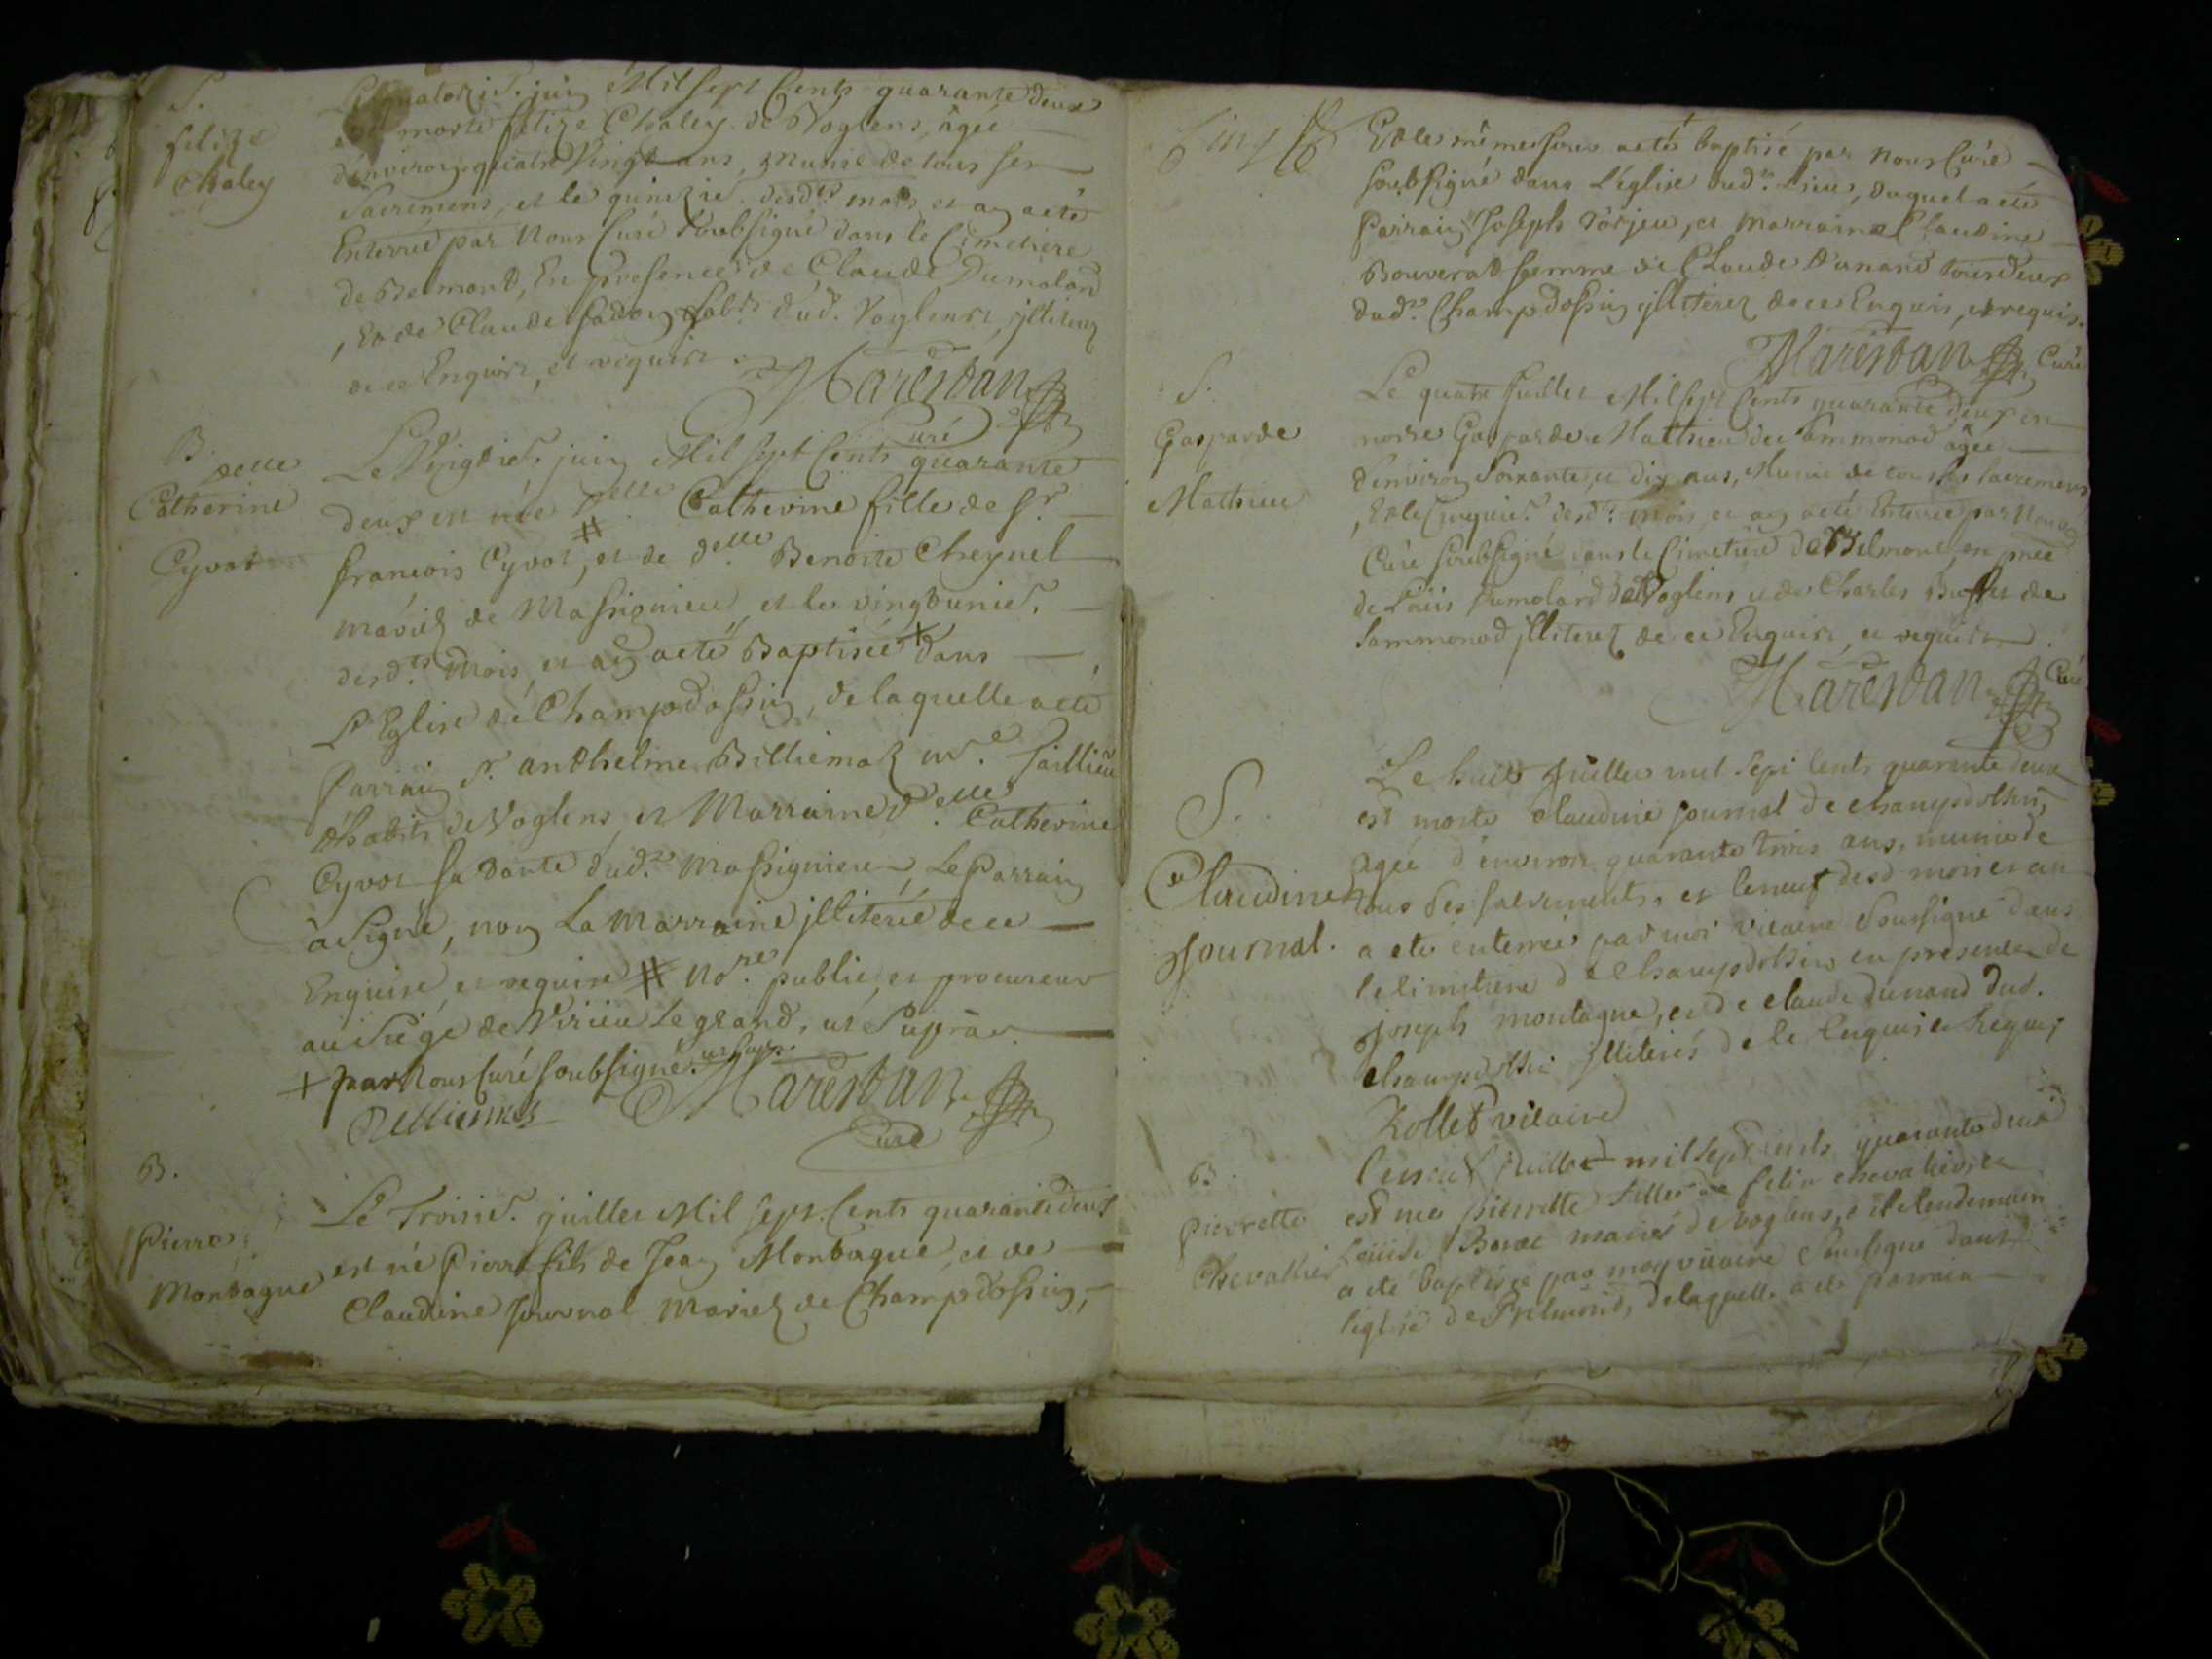 S.
felize
Chaley
Le quatorzie. juin Mil sept Cents quarante deux
est morte felize Chaley de Voglens, âgée
d'environ quatre Vingt ans, Munie de tous ses
Sacremens, et le quinzie. desd.ts mois et an a eté
Enterrée par Nous Curé soubsigné dans le Cimetiere
de Belmont, En presence de Claude Dumolard
, Et de Claude habts dud. Voglens, jlliterez
de ce Enquis, et requis.
Marestan
Curé
B.
Delle
Catherine
Cyvot
Le Vingtie. juin Mil sept Cents quarante
deux est née Delle. Catherine fille de Sr.
francois Cyvot #, et de Delle Benoite Cheynel
mariez de Massignieu, et le vingtunie.
desd.ts Mois, et an a eté Baptisée + dans
L'Eglise de Champdossin, de laquelle a eté
Parrain Sr. anthelme Billiemaz
d'habits de Voglens, et Marraine Delle. Catherine
Cyvot sa Tante dud. Massignieu, Le Parrain
à Signé, non La Marraine jlliterée de ce
Enquise, et requise # Nore. public, et procureur
au Siége de Virieu Le grand, ut Supra.
+ par Nous Curé soubsigné. ut supr.
Billiemaz Marestan
Curé
B.
Pierre
Montagne
Le Troisie. juillet Mil sept Cents quarante deux
est né Pierre fils de Jean Montagne, et de
Claudine Journal Mariez de Champdossin,
Et le même jour a eté baptisé par nous Curé
soubsigné dans L'église dud. Lieu, duquel a eté
Parrain Joseph Torjeu, et Marraine Claudine
Bouverat femme de Claude Dunand tous deux
dud. Champdossin jlliterez de ce Enquis, et requis.
Marestan Curé
S.
Gasparde
Mathieu
Le quatre Juillet Mil sept Cents quarante deux est
morte Gasparde Mathieu de Sammonod âgée
d'environ Soixante, et Dix ans, Munie de tous ses sacremens
, Et le Cinquie. desd.ts mois, et an a eté Enterrée par Nous
Curé soubsigné dans le Cimetiere de Belmont, en pnce
de Loüis Dumolard de Voglens et de Charles de
Sammonod jlliterez de ce Enquis, et requis.
Marestan Curé
S.
Claudine
Journal.
Le huit Juillet mil sept cents quarante deux
est morte claudine journal de champdossin,
agée d'environ quarante trois ans, munie de
tous ses sacrements, et le neuf desd mois et an
a eté enterrée par moi vicaire soussigné dans
le cimetiere de Champdossin en presence de
joseph montagne, et de claude dunand dud.
champdossin jlliterés de ce Enquis et Requis
Rollet vicaire
B.
Pierrette
Chevallier
le neuf juillet mil sept cents quarante deux
est née pierrette fille de felix chevalier et
Loüise mariés de voglens, et le lendemain
a eté baptisée par moy vicaire soussigné dans
l'église de Belmond, de laquelle a eté parrain